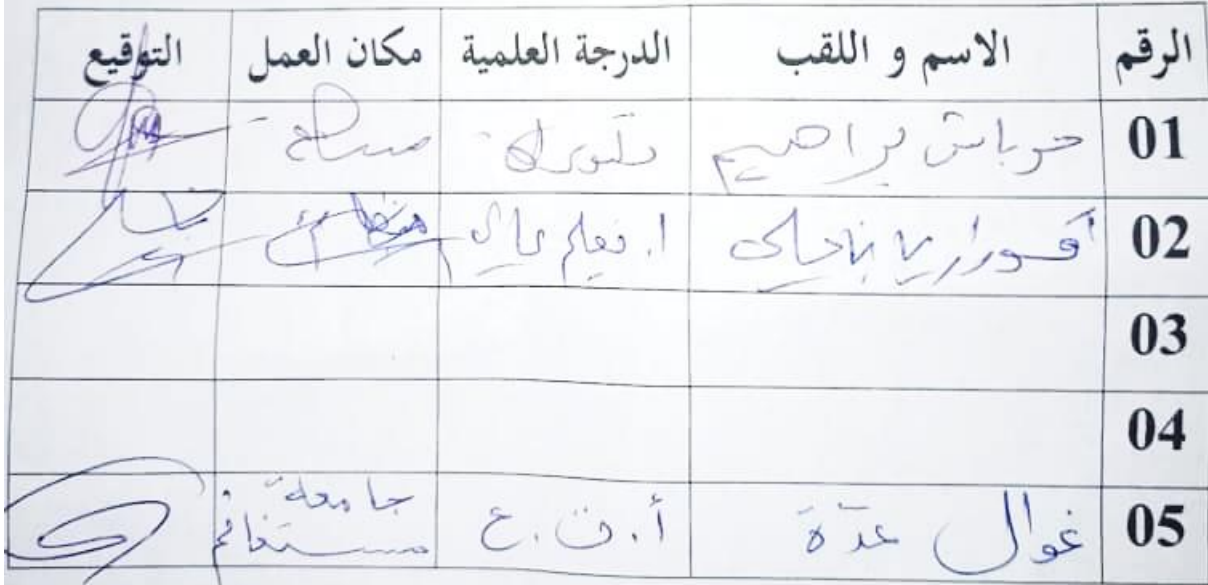 الرقم الاسم و اللقب الدرجة العلمية مكان العمل التوقيع
01 حرباش براهيم دكتوراه
02 ا. تعليم عالي
03
04
05 غوال عدة أ.ت.ع جامعة مستغانم